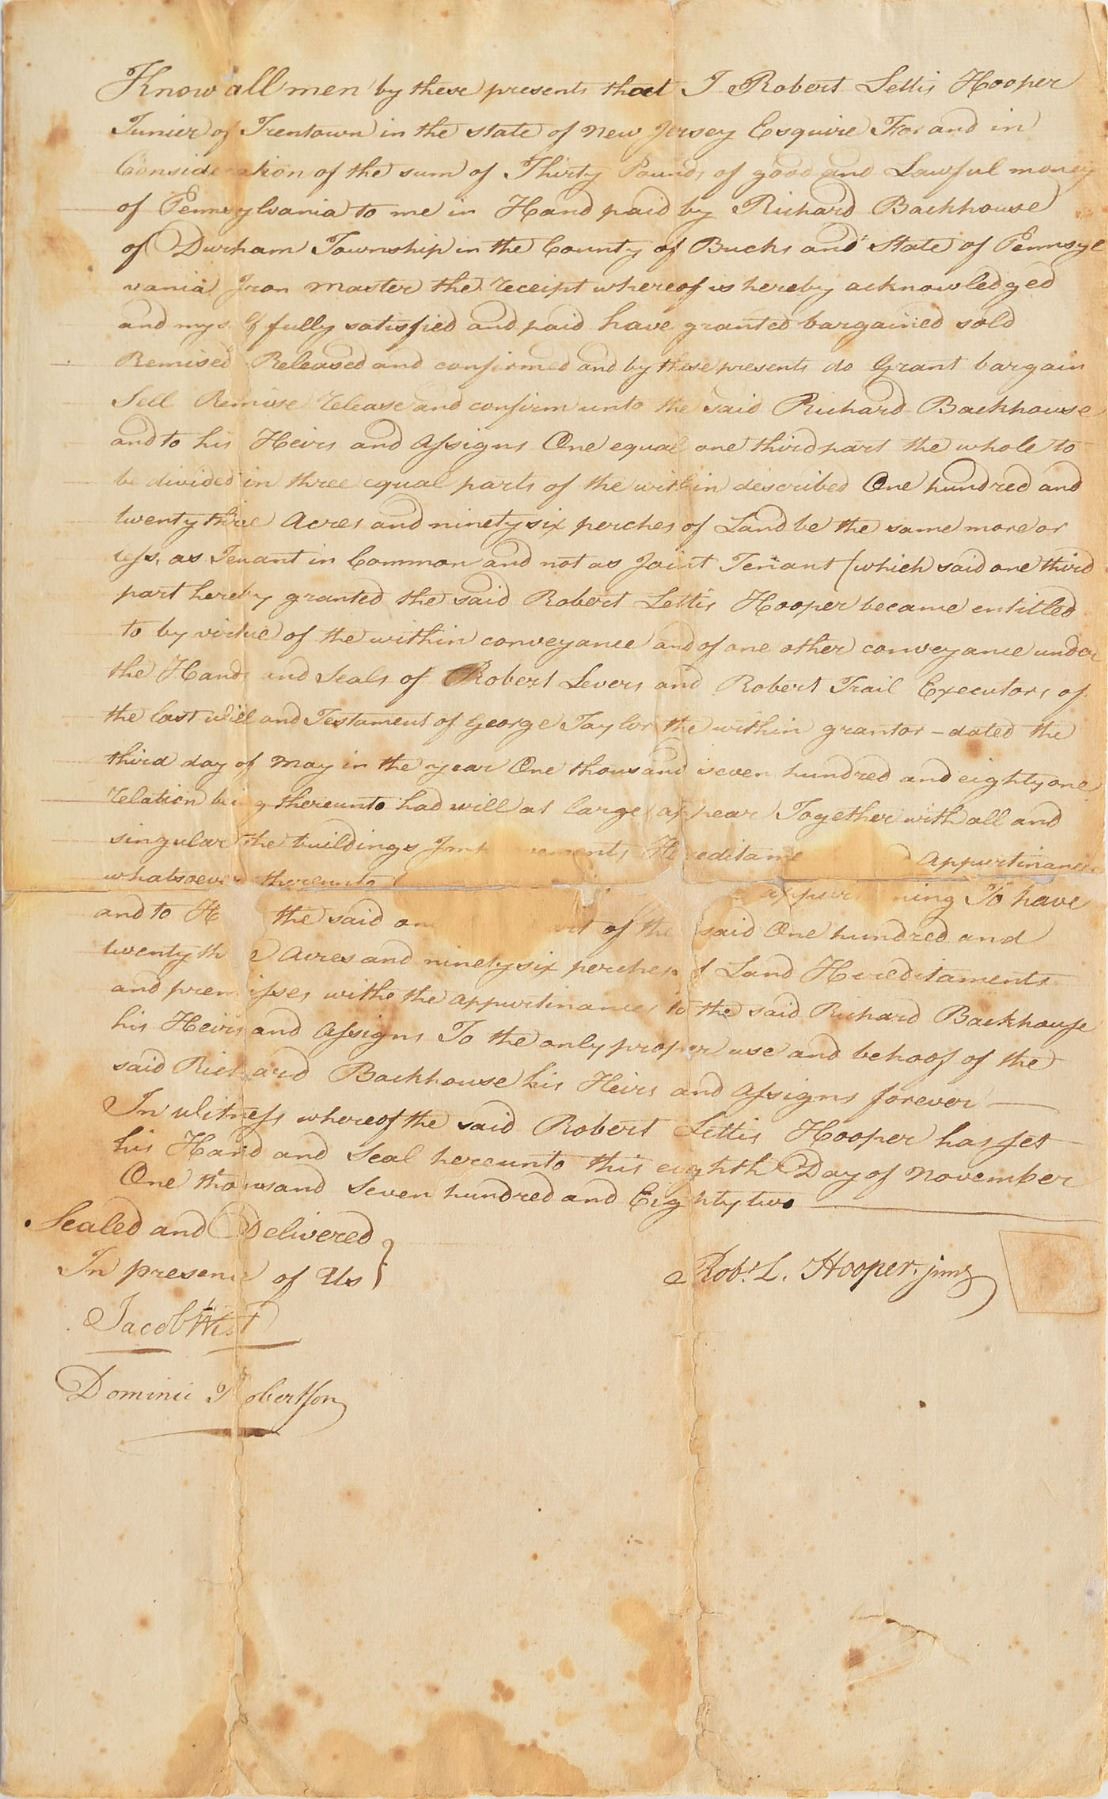 Know all men by these presents that I Robert Lettis Hooper
Junier of Trentown in the state of New Jersey Esquire For and in
Consideration of the sum of Thirty Pounds of good and Lawful money
of Pennsylvania to me in Hand paid by Richard Backhouse
of Durham Township in the County of Bucks and State of Pennsyl
vania Iron Master the receipt whereof is hereby acknowledged
and my fully satisfied and paid have granted bargained sold
Remised Released and confirmed and by these presents do Grant bargain
Sell Remise release and confirm unto the said Richard Backhouse
and to his Heirs and Assigns One equal one third part the whole to
be divided in three equal parts of the within described One hundred and
twenty three Acres and ninety six perches of Land be the same more or
less, as Tenant in Common and not as Joint Tenant (which said one third
part hereby granted the said Robert Lettis Hooper became entitled
to by virtue of the within conveyance and of one other conveyance under
the Hands and Seals of Robert Levers and Robert Trail Executors of
the last will and Testament of George Taylor the within grantor - dated the
third day of May in the year One thousand seven hundred and eighty one
relation being thereunto had will at large appear) Together with all and
singular the buildings Appurtinances
whatsoever thereunto ning To have
and to the said of the said One hundred and
twenty Acres and ninety six perches of Land Hereditaments
and premisses withe the appurtinances to the said Richard Backhouse
his Heirs and Assigns To the only proper use and behoof of the
said Richard Backhouse his Heirs and Assigns forever —
In witness whereof the said Robert Lettis Hooper has set
his Hand and Seal hereunto this eighth Day of November
One thousand Seven hundred and Eighty two
Sealed and Delivered
In presence of Us }
Robt. L. Hooper. junr
Jacob West
Dominic Robertson